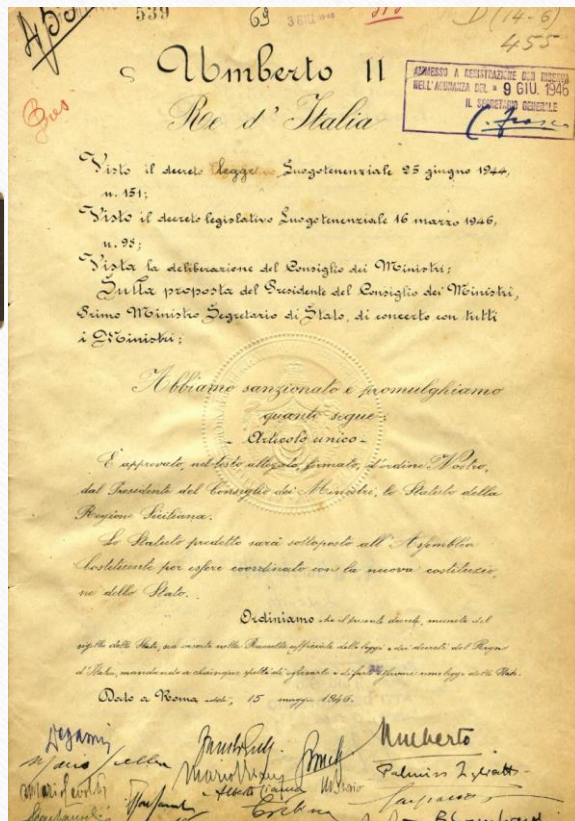 455
539
69
3 GIU 1946
D (14-6)
455
Umberto II
Re d'Italia
AMMESSO A REGISTRAZIONE CON RISERVA
NELL'ADUNANZA DEL 9 GIU. 1946
IL SEGRETARIO GENERALE
Visto il decreto legge Luogotenenziale 25 giugno 1944,
n. 151;
Visto il decreto legislativo Luogotenenziale 16 marzo 1946,
n. 98;
Vista la deliberazione del Consiglio dei Ministri;
Sulla proposta del Presidente del Consiglio dei Ministri,
Primo Ministro Segretario di Stato, di concerto con tutti
i Ministri;
Abbiamo sanzionato e promulghiamo
quanto segue:
- Articolo unico -
È approvato, nel testo allegato, firmato, d'ordine Nostro,
dal Presidente del Consiglio dei Ministri, lo Statuto della
Regione Siciliana.
Lo Statuto predetto sarà sottoposto all'Assemblea
Costituente per essere coordinato con la nuova costituzio,
ne dello Stato.
Ordiniamo che il presente decreto, munito del
sigillo dello Stato, sia inserto nella Raccolta ufficiale delle leggi e dei decreti del Regno
d'Italia, mandando a chiunque spetti di osservarlo e di farlo osservare come legge dello Stato.
Dato a Roma addì, 15 maggio 1946.
Umberto